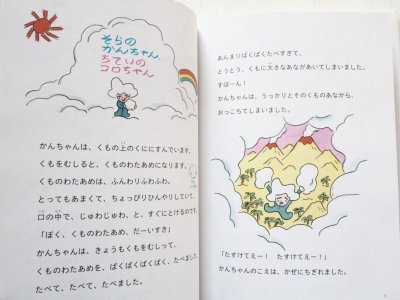 そらの
かんちゃん、
ちていの
コロちゃん
かんちゃんは、くもの上のくににすんでいます。
くもをむしると、くものわたあめになります。
くものわたあめは、ふんわりふわふわ。
とってもあまくて、ちょっぴりひんやりしていて、
口の中で、じゅわじゅわ、と、すぐにとけるのです。
「ぼく、くものわたあめ、だーいすき」
かんちゃんは、きょうもくもをむしって、
くものわたあめを、ぱくぱくぱくぱく、たべました。
たべて、たべて、たべました。
あんまりぱくぱくたべすぎて、
とうとう、くもに大きなあながあいてしまいました。
すぽーん！
かんちゃんは、うっかりとそのくものあなから、
おっこちてしまいました。
「たすけてえー！　たすけてえー！」
かんちゃんのこえは、かぜにちぎれました。